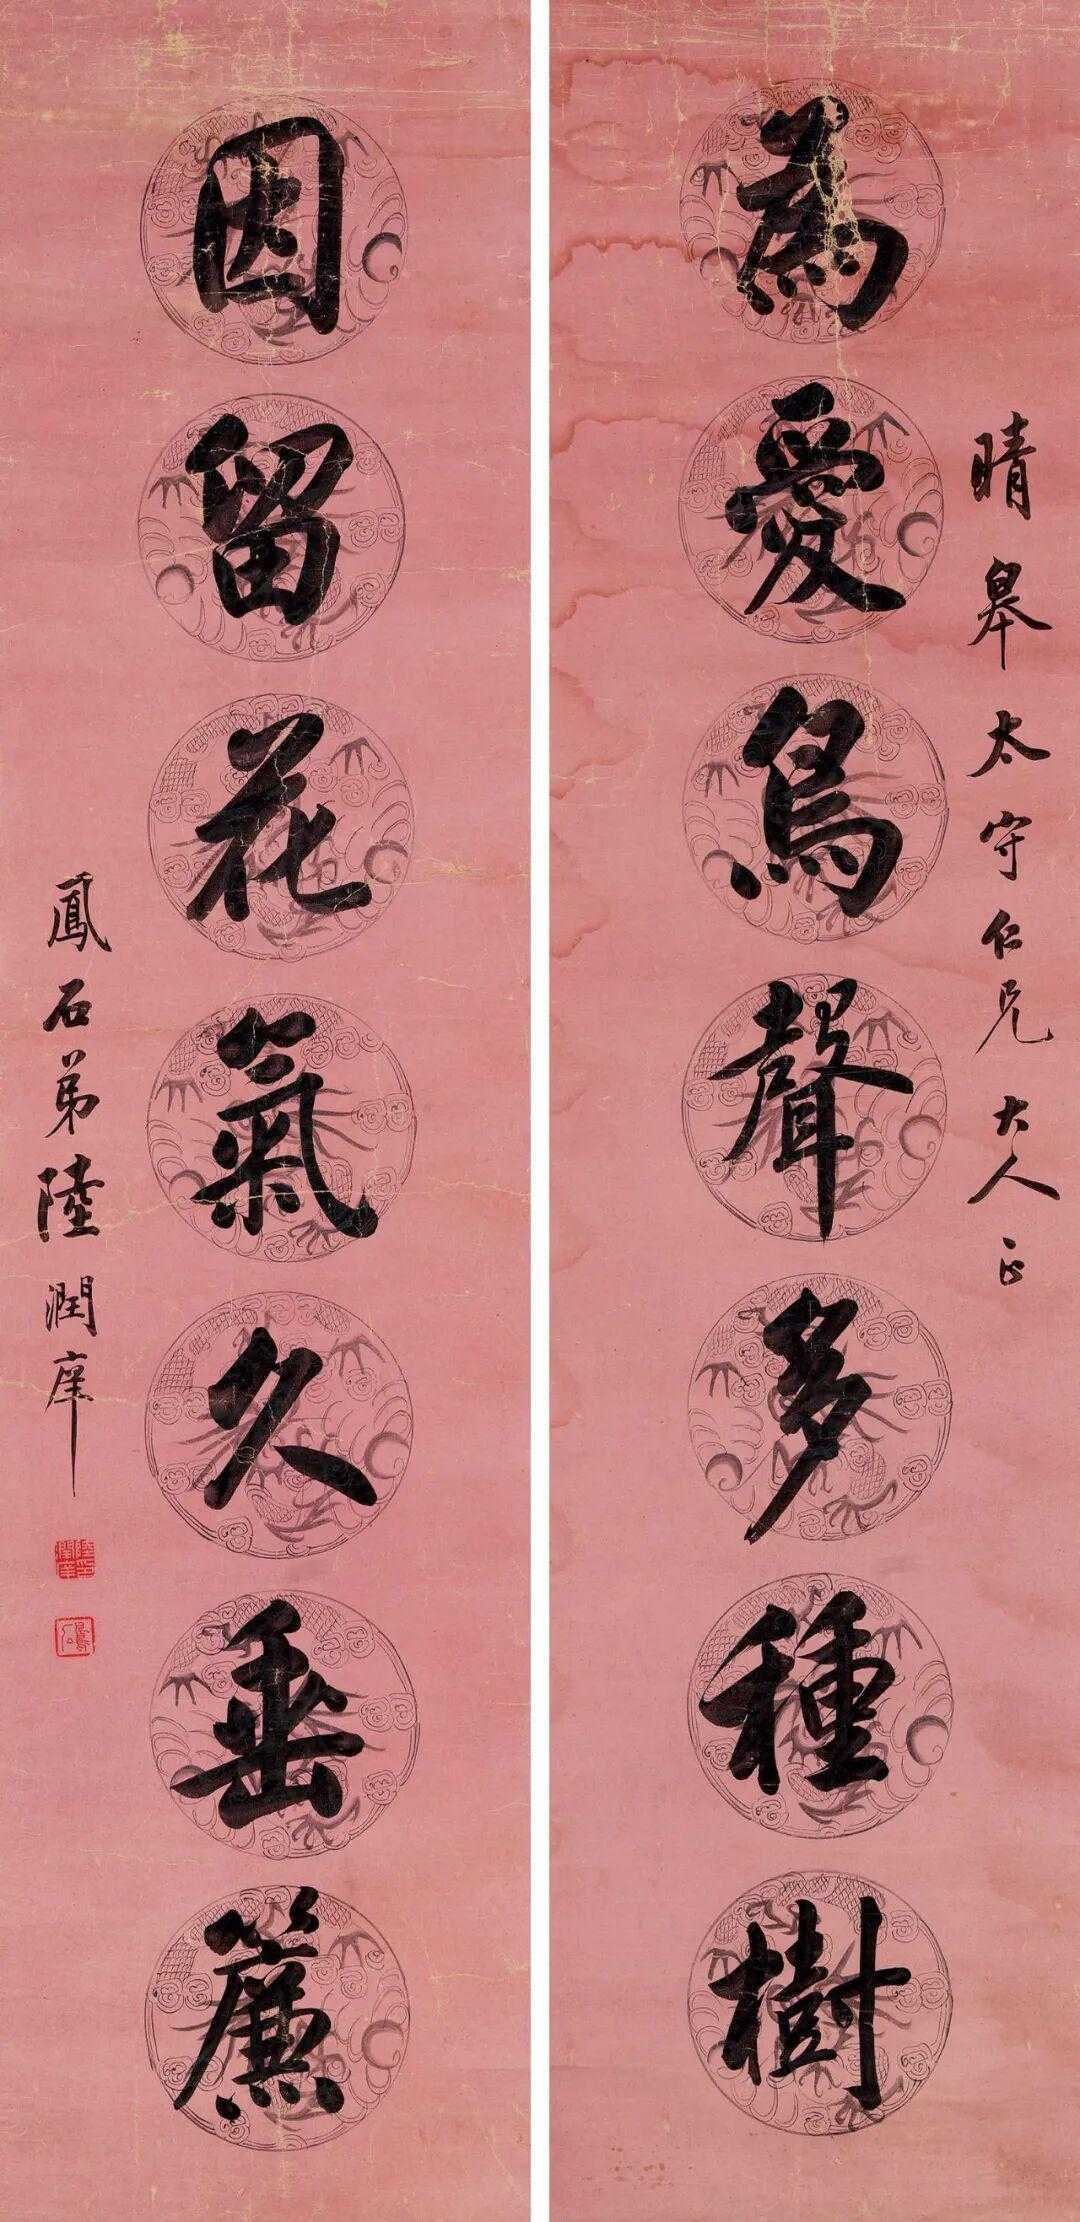 為愛鳥聲多種樹
晴皋太守仁兄大人正
因留花氣久垂簾
鳳石弟陸潤庠
陸潤庠印
鳳石